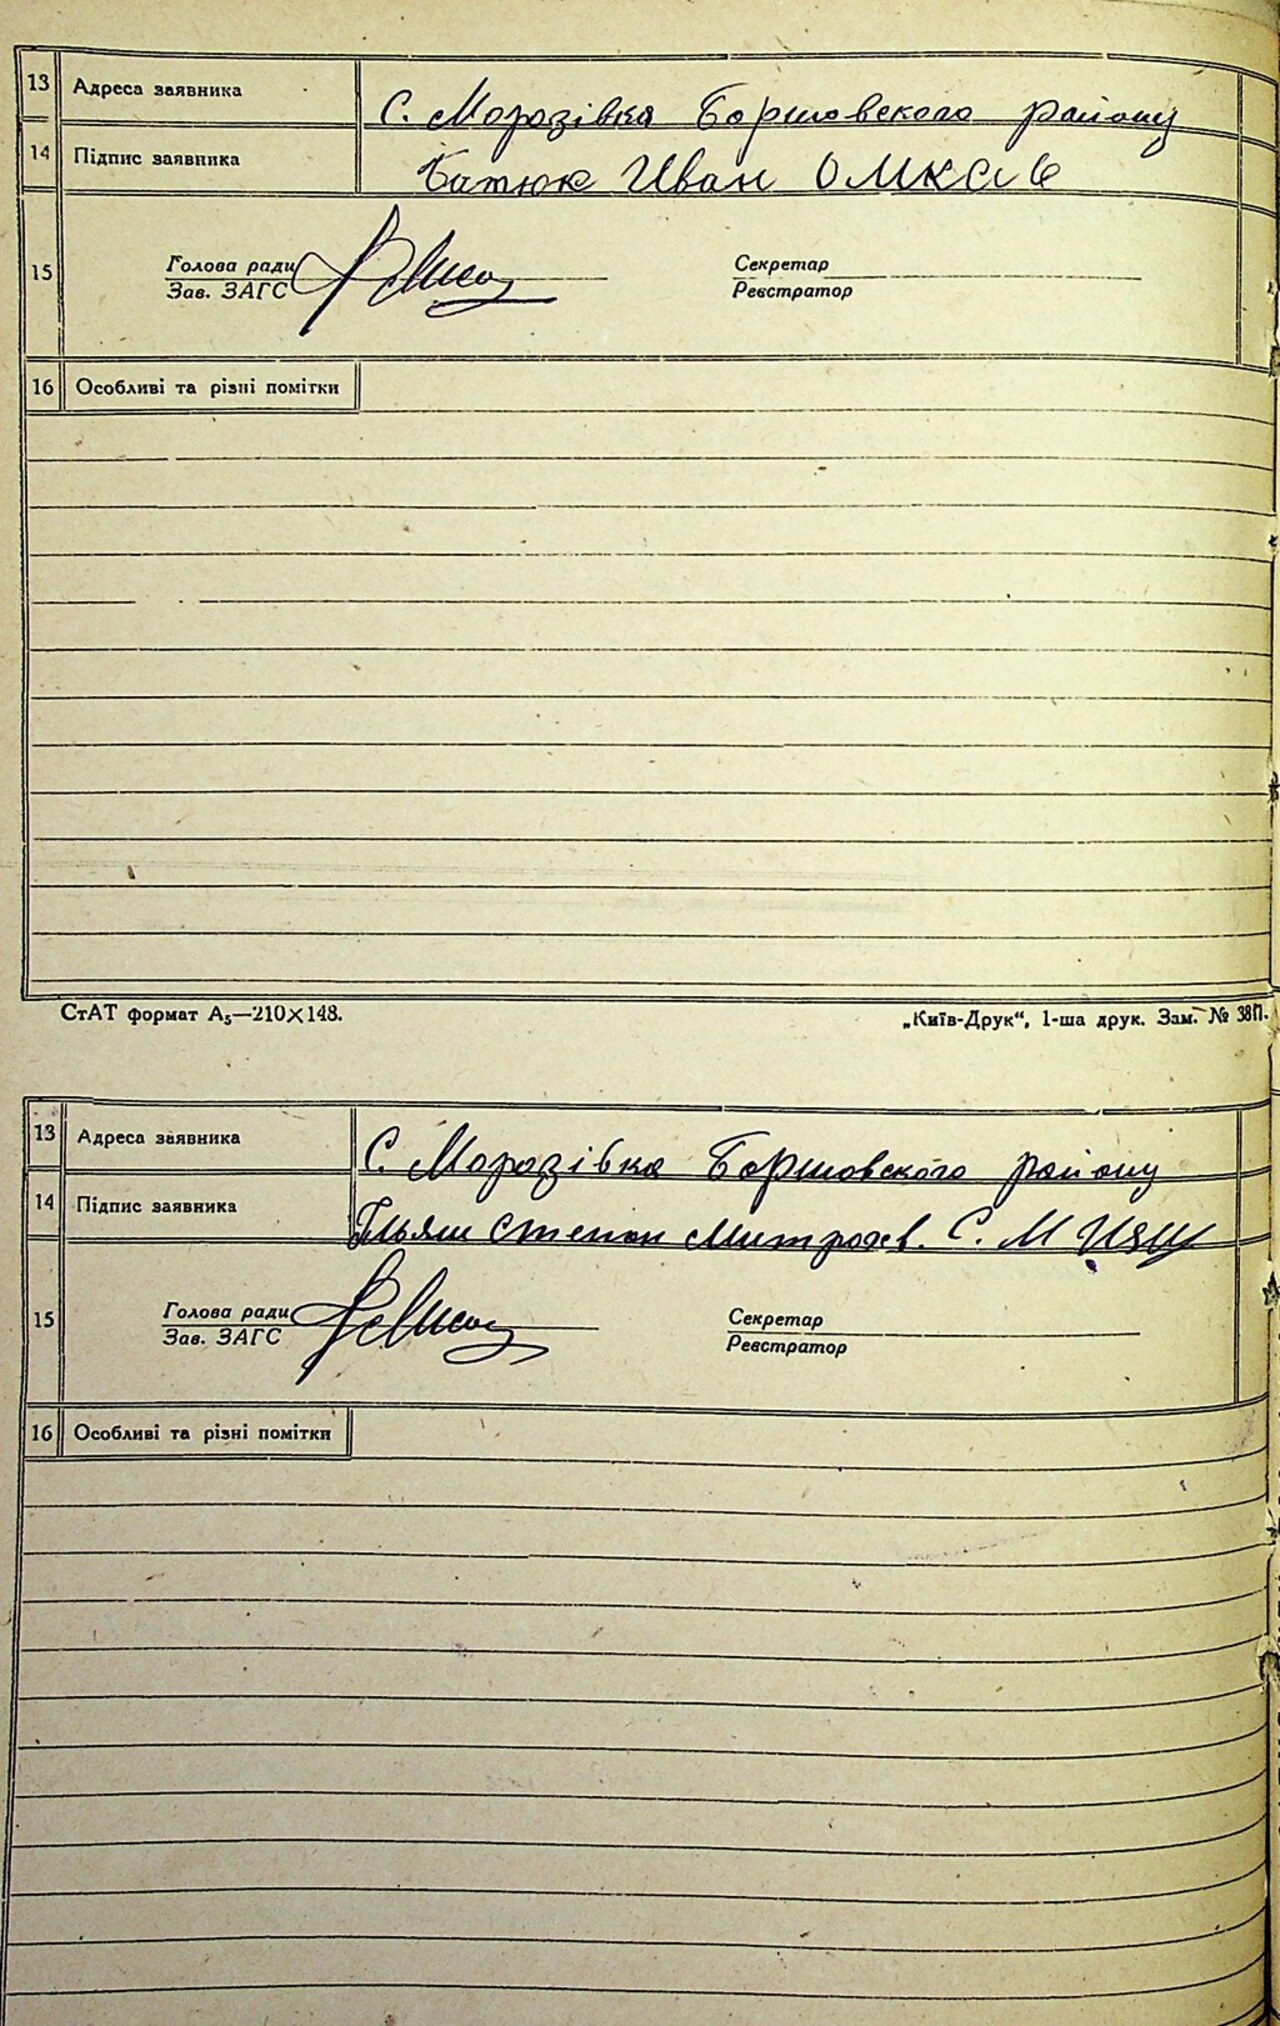 13 Адреса заявника С. Морозівка Боршовского району
14 Підпис заявника Батюк Иван
15 Голова ради Секретар
Зав. ЗАГС Реєстратор
16 Особливі та різні помітки
СтАТ формат А₅—210×148. „Київ-Друк“, 1-ша друк. Зам. № 38П.
13 Адреса заявника С. Морозівка Боршовского району
14 Підпис заявника Степан С. М
15 Голова ради Секретар
Зав. ЗАГС Реєстратор
16 Особливі та різні помітки